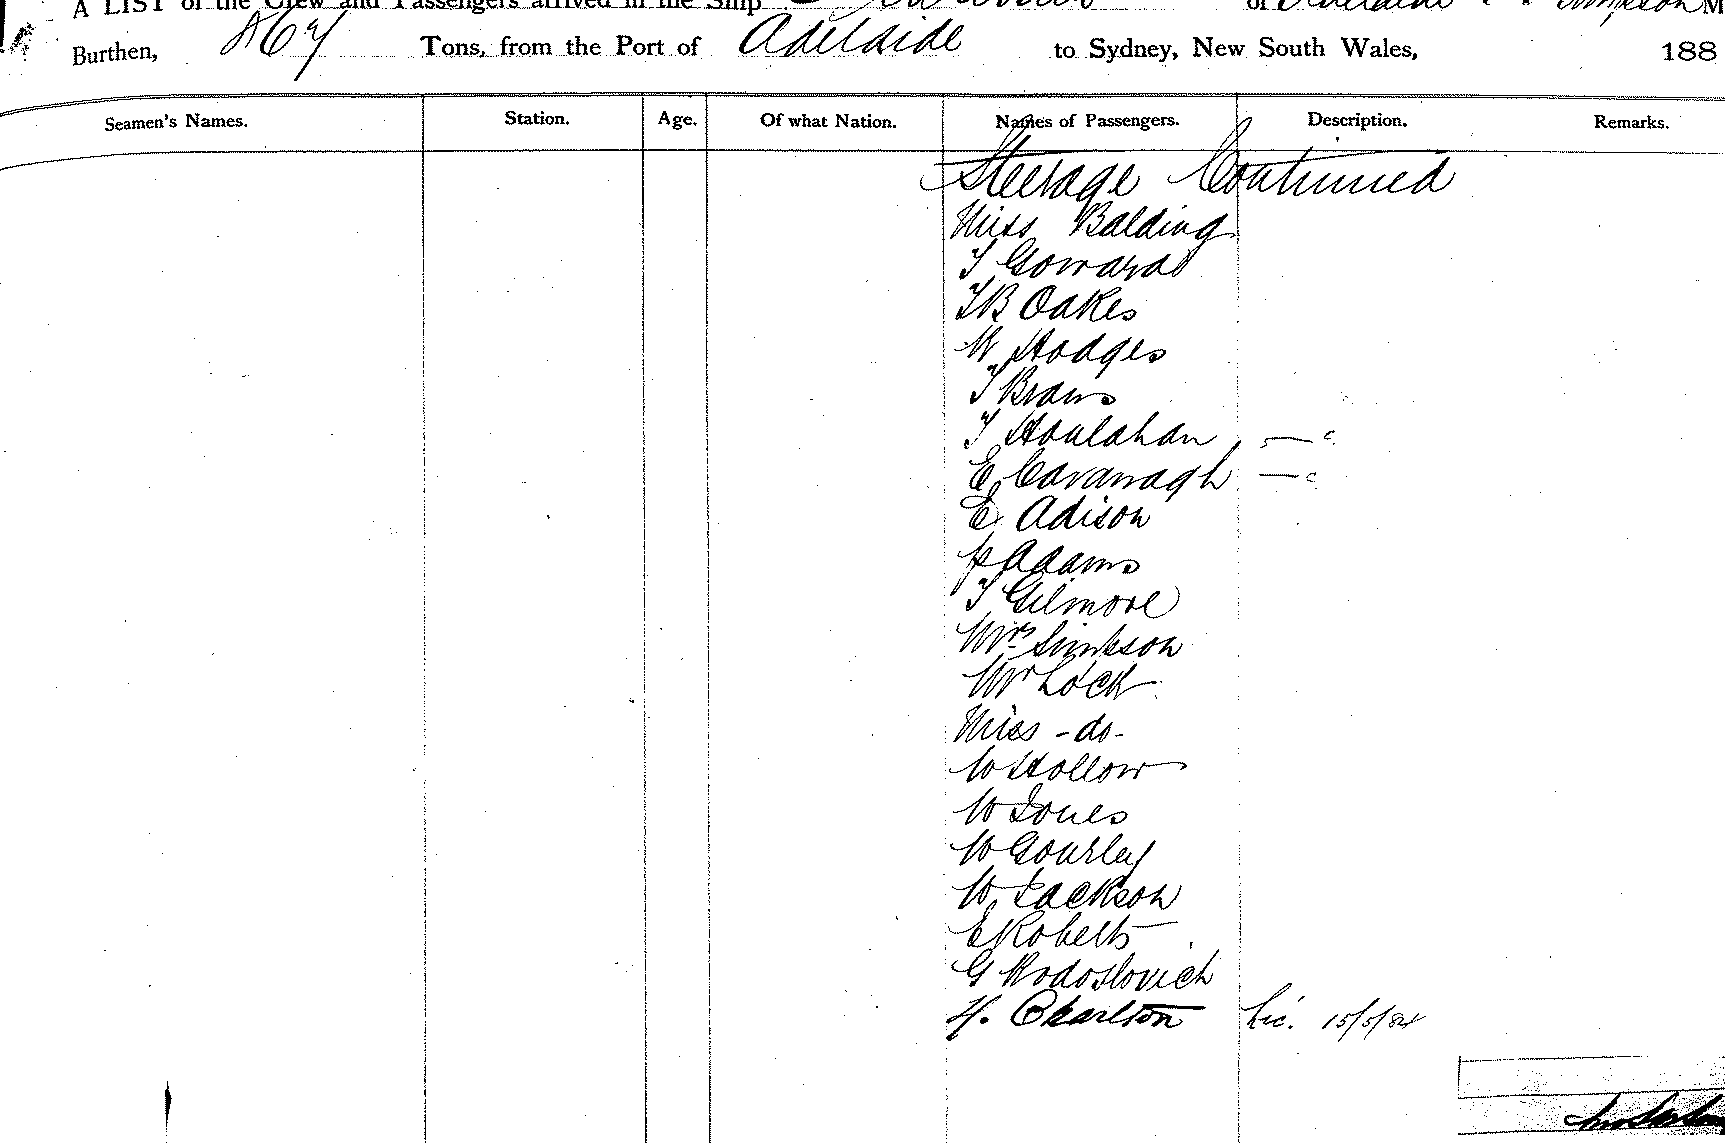 A LIST of the Crew and Passengers arrived in the Ship of Adelaide Simpson M
Burthen, 867 Tons, from the Port of Adelaide to Sydney, New South Wales, 188
Seamen's Names. Station. Age. Of what Nation. Names of Passengers. Description. Remarks.
Steerage Continued
Miss Balding
T Goward
TB Oakes
W Hodges
T Brown
T Houlahan — c
E Cavanagh — c
E Adison
P Adams
T Gilmore
Mrs Simpson
Mr Lock
Miss - do -
W Hollow
W Jones
W Gourley
W Jackson
E Roberts
G Rodoslovich
H. Charlton Lic. 15/5/84